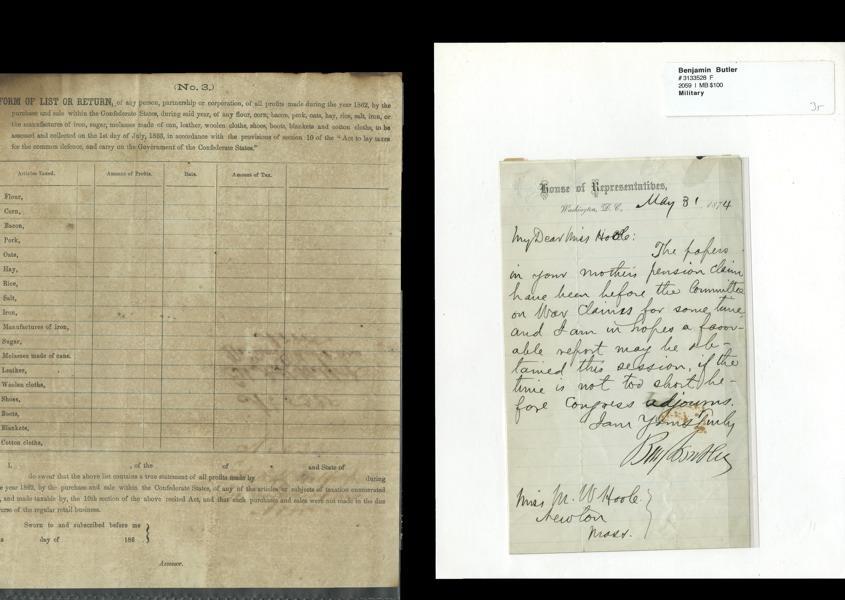 (No. 3.)
FORM OF LIST OR RETURN, of any person, partnership or corporation, of all profits made during the year 1862, by the
purchase and sale within the Confederate States, during said year, of any flour, corn, bacon, pork, oats, hay, rice, salt, iron, or
the manufactures of iron, sugar, molasses made of cane, leather, woolen cloths, shoes, boots, blankets and cotton cloths, to be
assessed and collected on the 1st day of July, 1863, in accordance with the provisions of section 10 of the "Act to lay taxes
for the common defence, and carry on the Government of the Confederate States."
Articles Taxed. Amount of Profits. Rate. Amount of Tax.
Flour,
Corn,
Bacon,
Pork,
Oats,
Hay,
Rice,
Salt,
Iron,
Manufactures of iron,
Sugar,
Molasses made of cane.
Leather,
Woolen cloths,
Shoes,
Boots,
Blankets,
Cotton cloths,
I, , of the of and State of
do swear that the above list contains a true statement of all profits made by during
year 1862, by the purchase and sale within the Confederate States, of any of the articles or subjects of taxation enumerated
, and made taxable by, the 10th section of the above recited Act, and that such purchase and sales were not made in the due
of the regular retail business.
Sworn to and subscribed before me
day of 186
Assessor.
Benjamin Butler
#3133528 F
2059 | MB $100
Military
House of Representatives,
Washington, D. C., May 31 1874
My Dear Miss Hoole:
The papers
in your mothers pension claim
have been before the Committee
on War Claims for some time
and I am in hopes a favor-
able report may be ob-
tained this session, if the
time is not too short be-
fore Congress adjourns.
I am Yours Truly
Benj F Butler
Miss M. W Hoole
Newton
Mass.